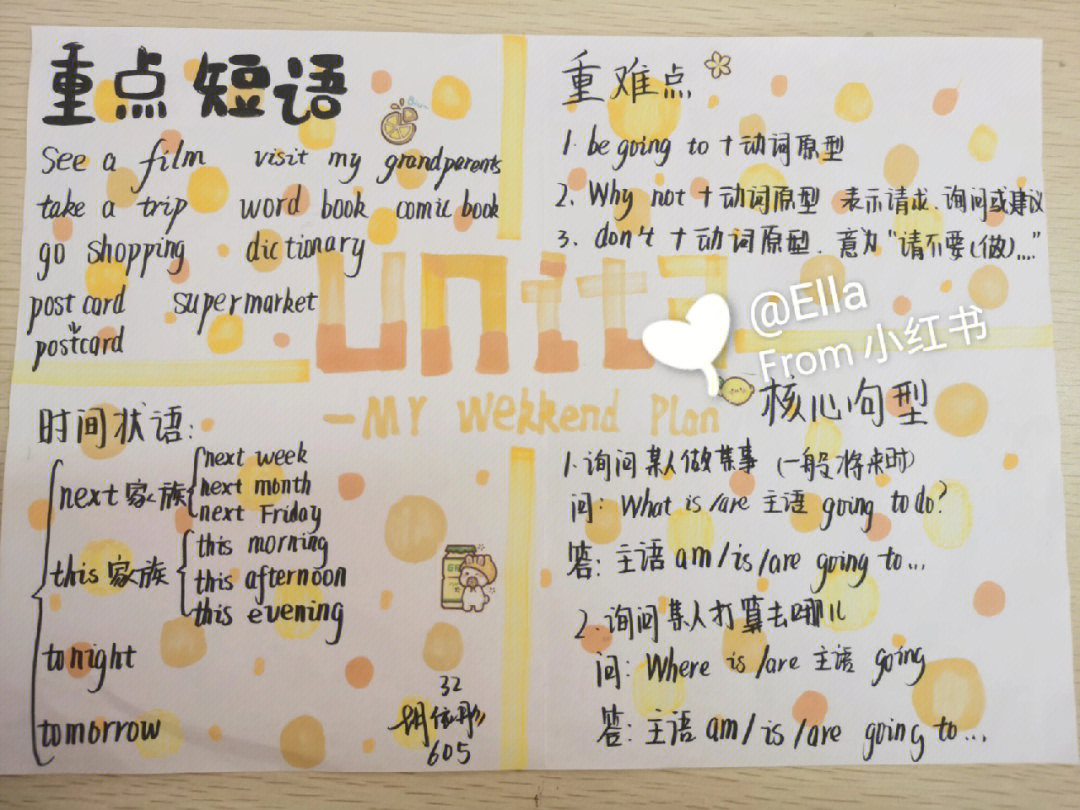 重点短语
see a film visit my grandparents
take a trip word book comic book
go shopping dictionary
post card supermarket
postcard
重难点
1. be going to + 动词原型
2. Why not + 动词原型 表示请求、询问或建议
3. don't + 动词原型. 意为"请不要(做)...."
unit3
—MY Wekkend Plan
@Ella
From 小红书
时间状语:
next 家族
next week
next month
next Friday
this 家族
this morning
this afternoon
this evening
tonight
tomorrow
核心句型
1. 询问某人做某事 (一般将来时)
问: What is /are 主语 going to do?
答: 主语 am/is/are going to...
2. 询问某人打算去哪儿
问: Where is /are 主语 going
答: 主语 am/is/are going to...
32
605